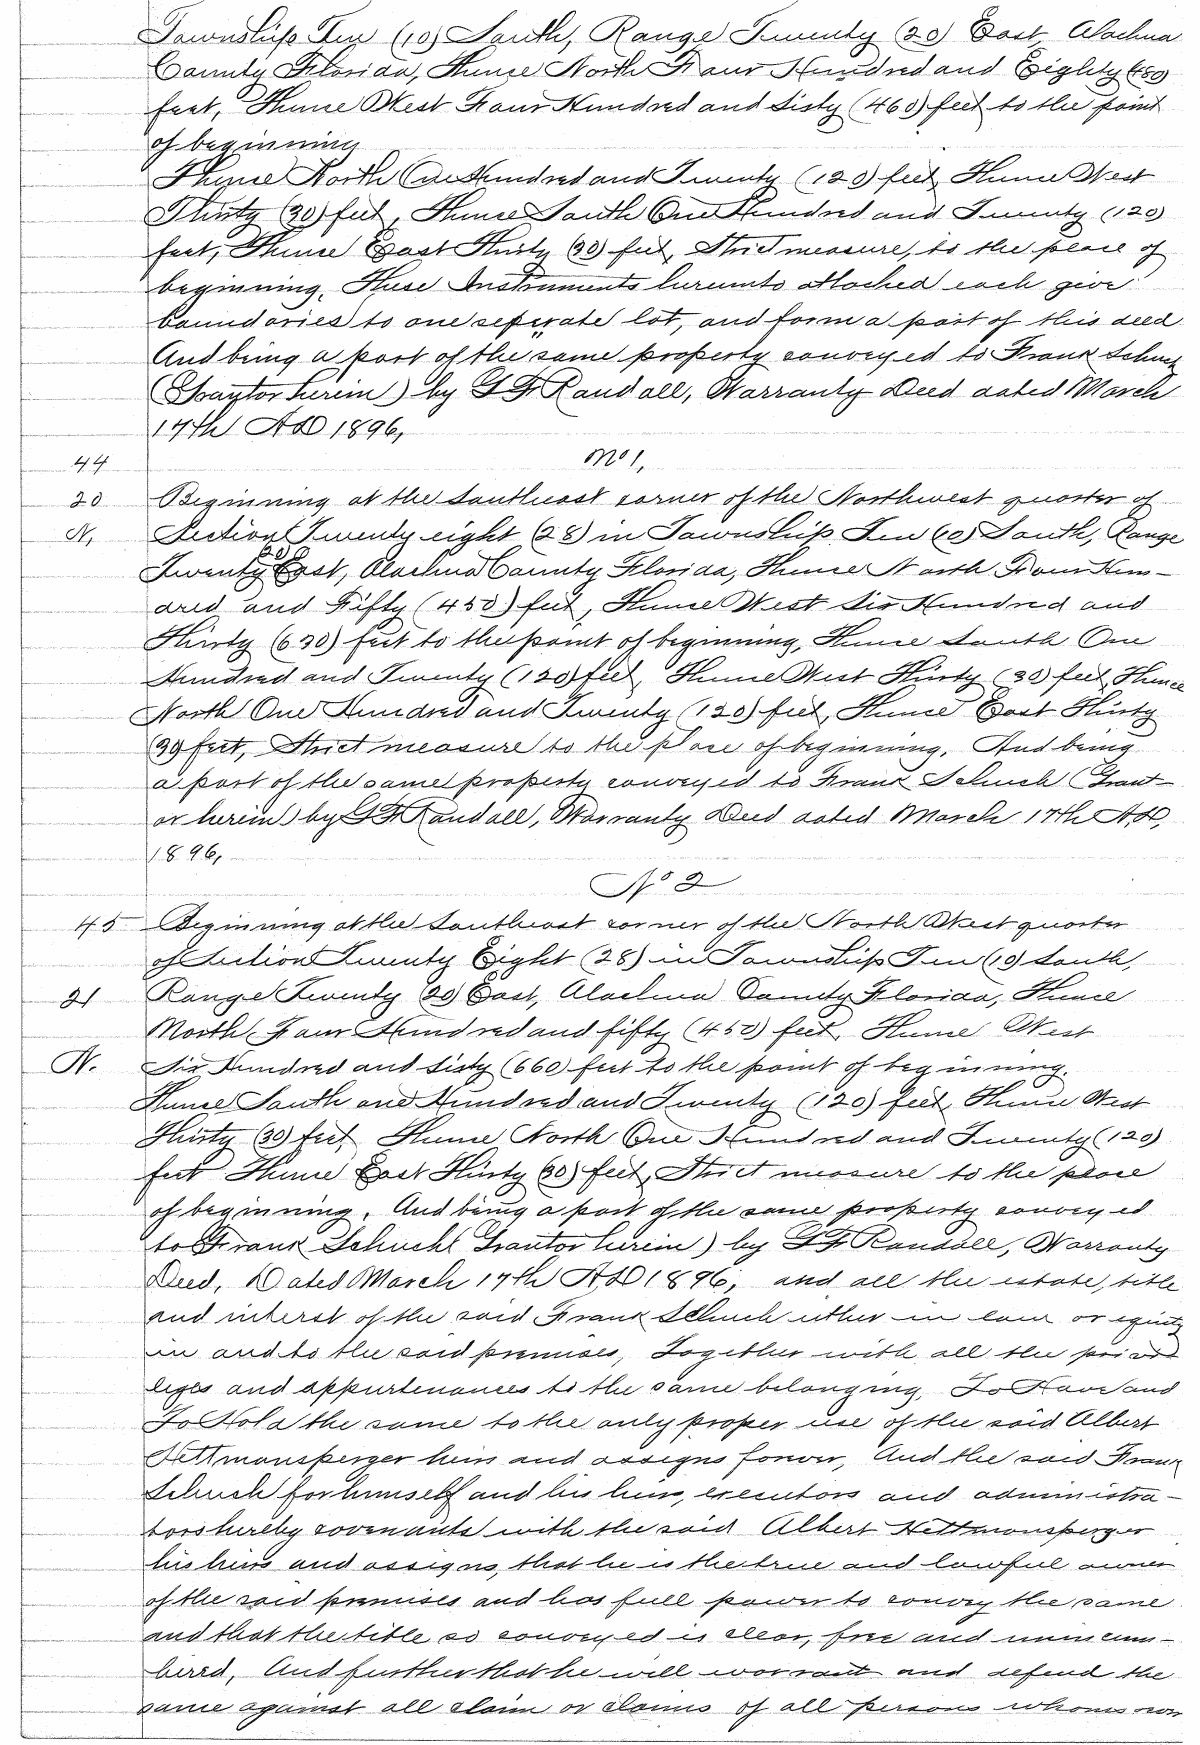 Township Ten (10) South, Range Twenty (20) East, Alachua
County Florida, Thence North Four Hundred and Eighty (480)
feet, Thence West Four Hundred and Sixty (460) feet to the point
of beginning
Thence North One Hundred and Twenty (120) feet, Thence West
Thirty (30) feet, Thence South One Hundred and Twenty (120)
feet, Thence East Thirty (30) feet, Strict measure, to the place of
beginning. These Instruments hereunto attached each give
boundaries to one seperate lot, and form a part of this deed
And being a part of the same property conveyed to Frank Schuch
(Grantor herein) by G F Randall, Warranty Deed dated March
17th AD 1896,
44 No 1,
20 Beginning at the Southeast corner of the Northwest quarter of
N, Section Twenty eight (28) in Township Ten (10) South, Range
Twenty (20) East, Alachua County Florida, Thence North Four Hun-
dred and Fifty (450) feet, Thence West Six Hundred and
Thirty (630) feet to the point of beginning, Thence South One
Hundred and Twenty (120) feet, Thence West Thirty (30) feet, Thence
North One Hundred and Twenty (120) feet, Thence East Thirty
(30) feet, Strict measure to the place of beginning. And being
a part of the same property conveyed to Frank Schuch (Grant-
or herein) by G F Randall, Warranty Deed dated March 17th AD,
1896,
No 2
45 Beginning at the Southeast corner of the North West quarter
of Section Twenty Eight (28) in Township Ten (10) South,
21 Range Twenty (20) East, Alachua County Florida, Thence
North Four Hundred and fifty (450) feet, Thence West
N. Six Hundred and Sixty (660) feet to the point of beginning.
Thence South one Hundred and Twenty (120) feet, Thence West
Thirty (30) feet, Thence North One Hundred and Twenty (120)
feet Thence East Thirty (30) feet, Strict measure to the place
of beginning. And being a part of the same property conveyed
to Frank Schuch (Grantor herein) by G F Randall, Warranty
Deed, Dated March 17th AD 1896, and all the estate, title
and interst of the said Frank Schuch either in law or equity
in and to the said premises, Together with all the privi
leges and appurtenances to the same belonging, To Have and
To Hold the same to the only proper use of the said Albert
Hettmansperger heirs and assigns forever, And the said Frank
Schuch for himself and his heirs, executors and administra-
tors hereby covenants with the said Albert Hettmansperger
his heirs and assigns, that he is the true and lawful owner
of the said premises and has full power to convey the same
and that the title so conveyed is clear, free and unincum-
bered, And further that he will warrant and defend the
same against all claim or claims of all persons whomsoever